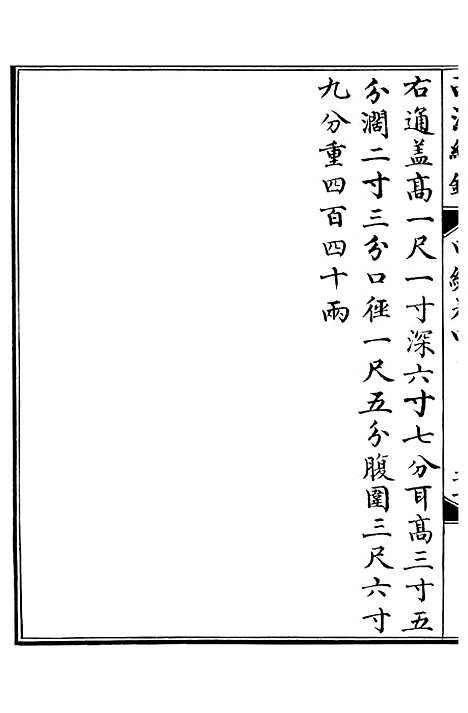 右通盖髙一尺一寸深六寸七分耳髙三寸五
分濶二寸三分口徑一尺五分腹圍三尺六寸
九分重四百四十兩